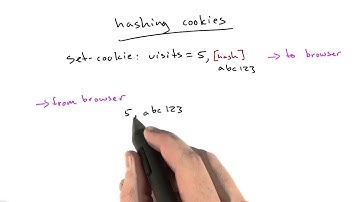 hashing cookies
set-cookie: visits = 5, [hash] → to browser
abc123
→ from browser
5, abc123